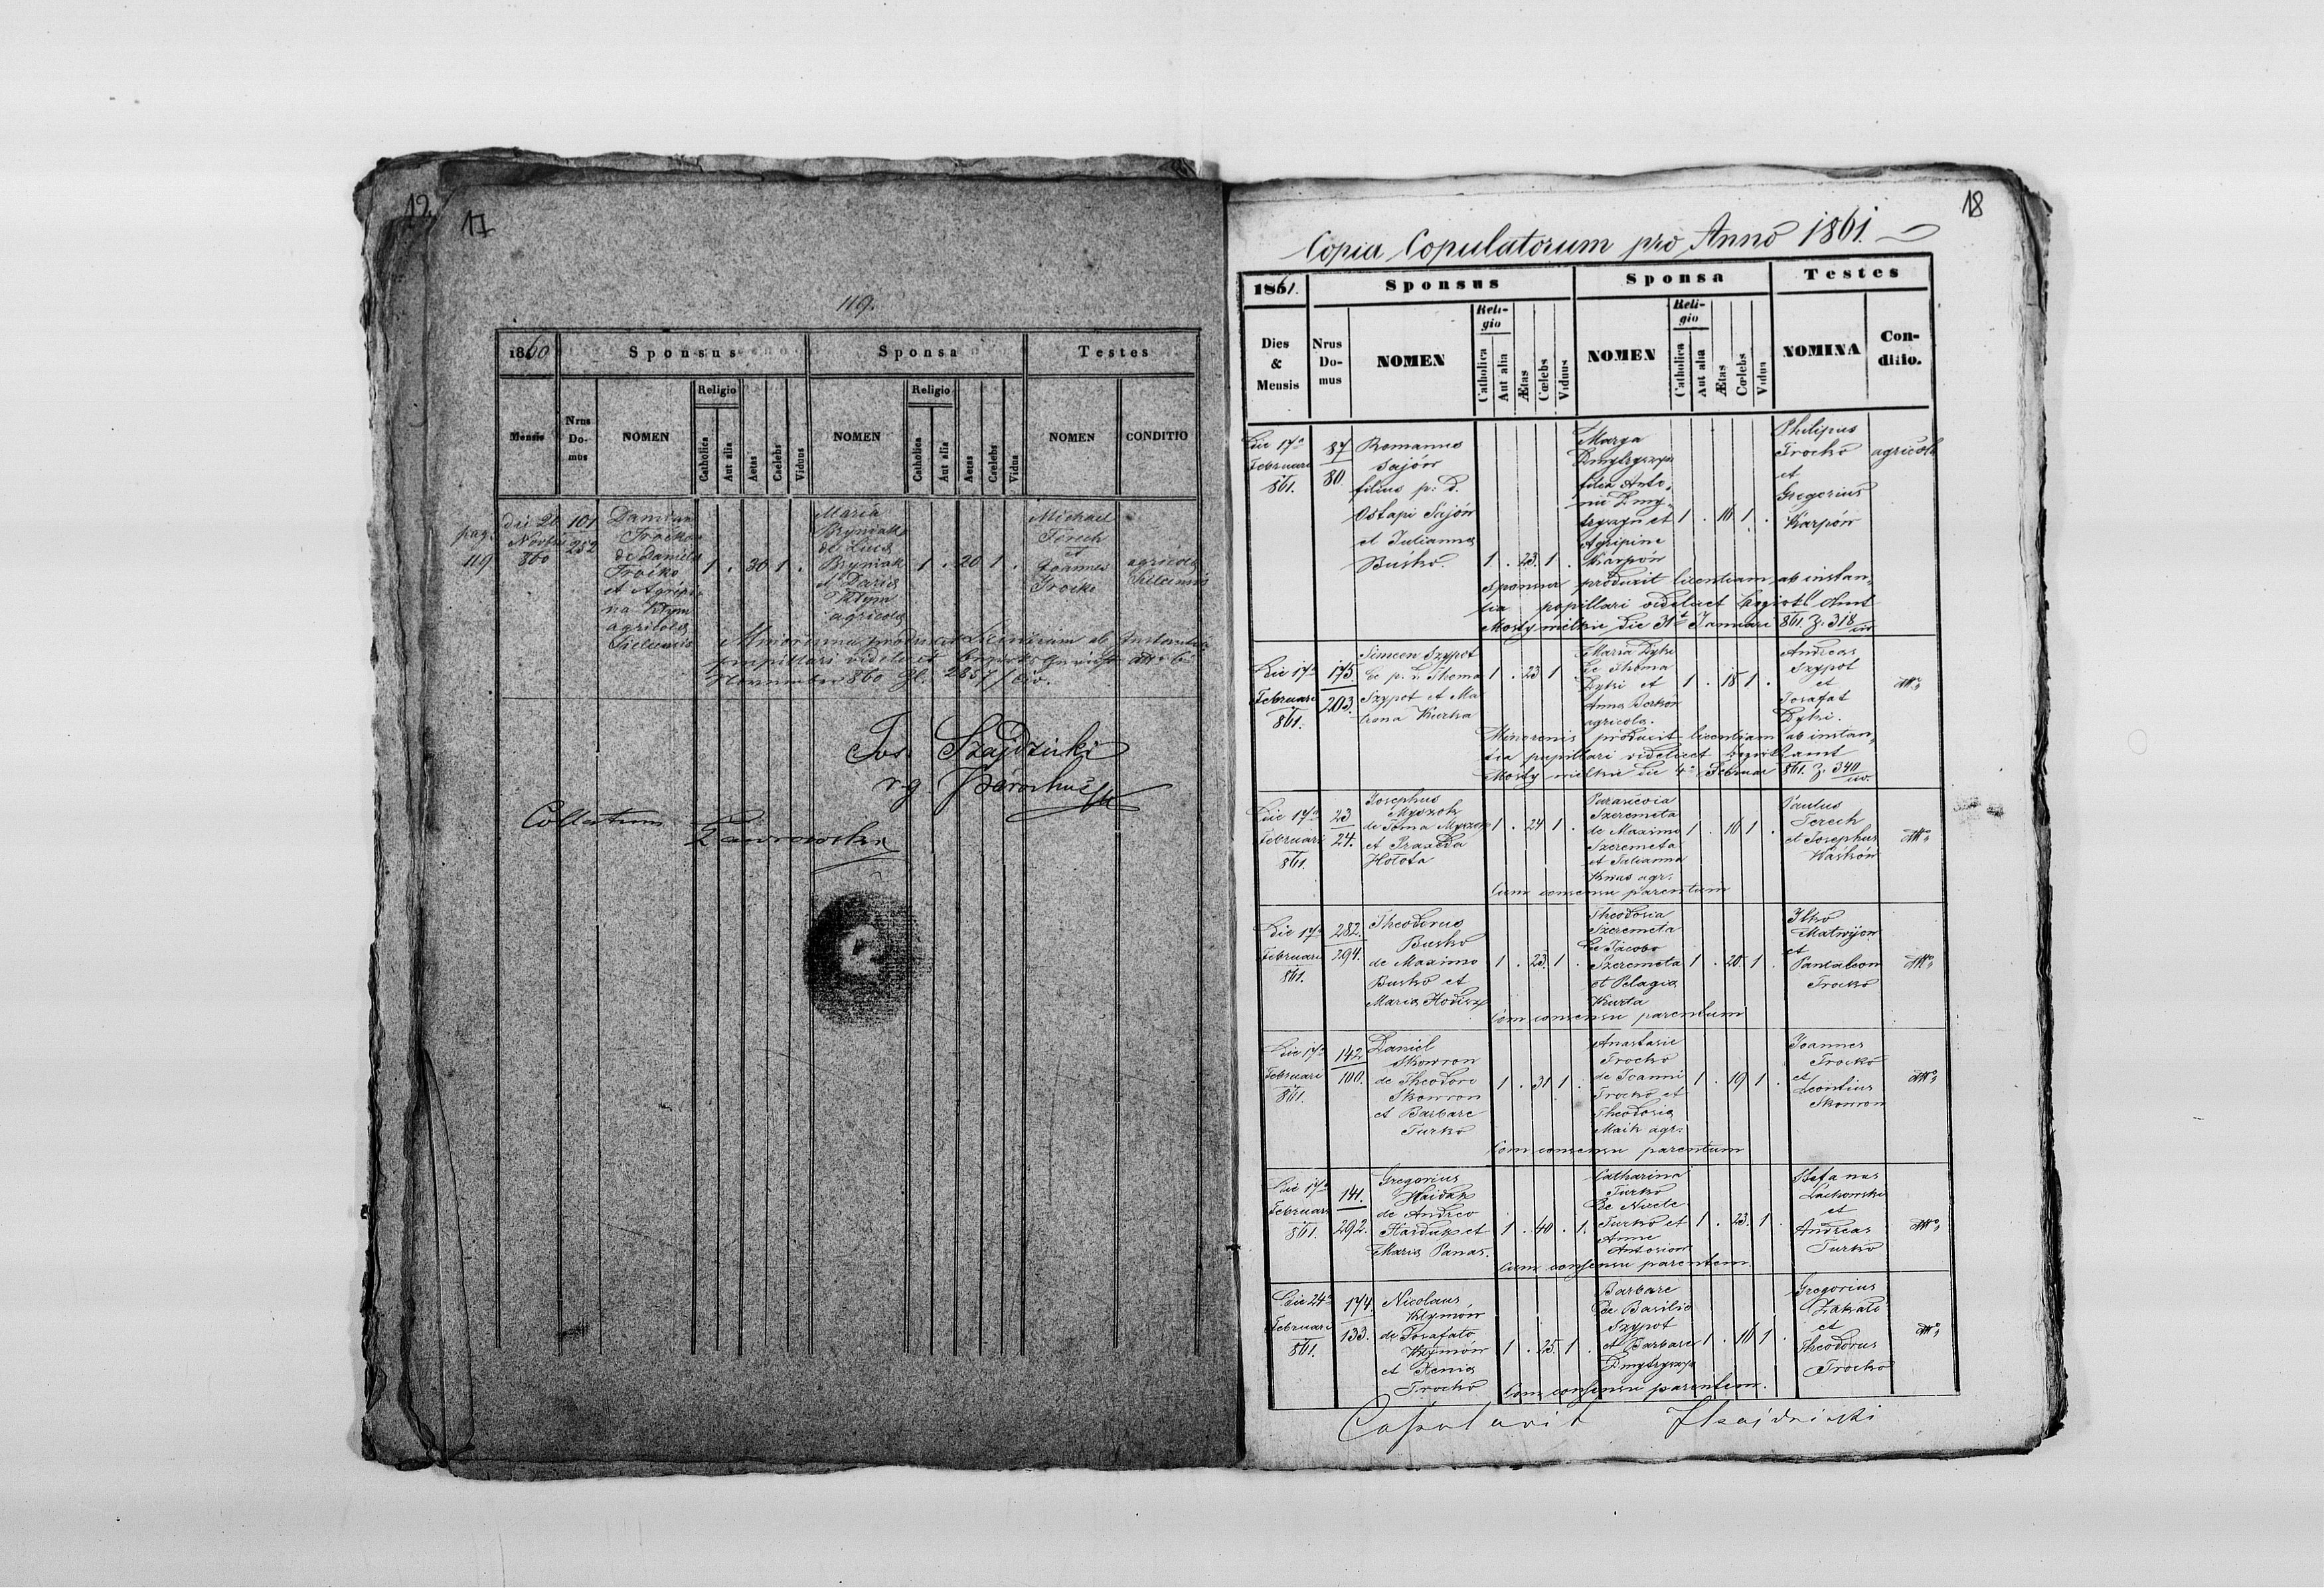 12
17
119.
1860
Sponsus
Sponsa
Testes
Mensis
Nrus Do-mus
NOMEN
Religio
Catholica
Aut alia
Aetas
Caelebs
Viduus
NOMEN
Religio
Catholica
Aut alia
Aetas
Caelebs
Vidua
NOMEN
CONDITIO
pag.
119
die 21
860
101
252
Damian
Troćko
de Daniele
Troćko
et Agripi
na Kłym
agricola
1 . 30 1 .
Maria
Bryniak
de Luca
Bryniak
et Daria
Kłym
agricola
1 . 20 1 .
Michael
Terech
et
Joannes
Troćko
agricola
Minorenna produxit licentiam ab Instantia
pupillari videlicet
Novembra 860
Jos. Szajdzicki
Parochus
Collatum
18
Copia Copulatorum pro Anno 1861.
1861.
Sponsus
Sponsa
Testes
Dies & Mensis
Nrus Do-mus
NOMEN
Reli-gio
Catholica
Aut alia
Ætas
Cœlebs
Viduus
NOMEN
Reli-gio
Catholica
Aut alia
Ætas
Cœlebs
Vidua
NOMINA
Con-ditio.
Die 17a
Februari
861.
87
80
Romanus
Sajón
filius p. d.
Ostapi Sajón
et Julianna
Buśko.
1 . 23 1 .
Marya
Dmytryszyn
filia Anto-
nii Dmy-
tryszyn et
Agripine
Karpón
1 . 16 1 .
Philipus
Trocko
et
Gregorius
Karpón
agricola
Sponsa produxit licentiam ab instan-
tia pupillari videlicet Amt
Mosty wielkie die 31t Januari 861. Z. 318
Die 17a
Februari
861.
175.
203.
Simeon Szypot
de p. d. Thoma
Szypot et Ma
trona Kurka
1 . 23 1
Maria Dyki
de Thoma
Dyki et
Anna
agricola.
1 . 18 1 .
Andreas
Szypot
et
Josafat
Dyki.
Minorenis produxit licentiam ab instan-
tia pupillari videlicet amt
Mosty wielkie die 4a Februar 861. Z. 340
Die 17a
Februari
861.
23
24.
Josephus
Myszok
de Toma Myszok
et Praxeda
Hołota
1 . 24 1 .
Parascevia
Szeremeta
de Maximo
Szeremeta
et Julianna
agr.
1 . 16 1 .
Paulus
Terech
et Josephus
Waśkón
Cum consensu parentum
Die 17a
Februari
861.
282.
294.
Theodorus
Busko
de Maximo
Busko et
Maria
1 . 23. 1 .
Theodosia
Szeremeta
de Jacobo
Szeremeta
et Pelagia
Kurta
1 . 20. 1 .
Ilko
Matwijon
et
Pantaleon
Trocko
Com consensu parentum
Die 17a
Februari
861.
142
100.
Daniel
Skowron
de Theodoro
Skowron
et Barbare
Turko
1 . 31 1 .
Anastasie
Trocko
de Joanni
Trocko et
Theodosia
Maik agr.
1 . 19 1 .
Joannes
Trocko
et
Leontius
Skowron
Com consensu parentum
Die 17a
Februari
861.
141.
292.
Gregorius
Haiduk
de Andreo
Haiduk et
Maria Panas.
1 . 40 . 1.
Catharina
Turko
Turko et
Anne
1 . 23. 1 .
Stefanus
Lackowski
et
Andreas
Turko
Cum consensu parentem
Die 24a
Februari
861.
174.
133.
Nicolaus
Kłymón
de Josafato
Kłymón
et Xenia
Trocko
1 . 25. 1 .
Barbare
de Basilio
Szypot
et Barbare
Dmytryszyn
1 . 16 1 .
Gregorius
et
Theodorus
Trocko
Com consensu parentem.
Copulavit Szajdzicki